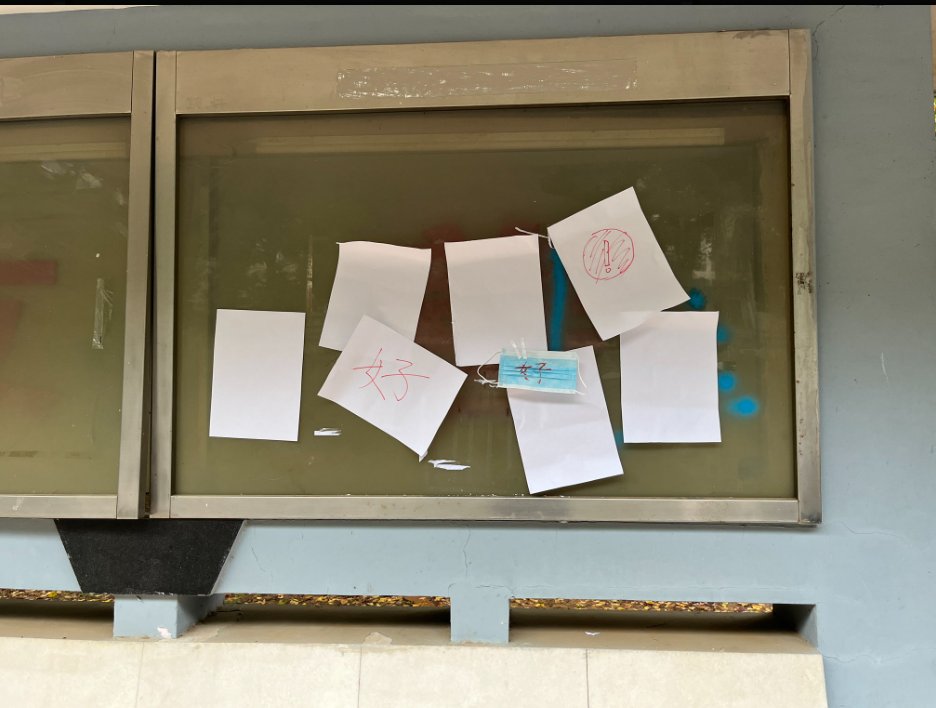 !
好
好